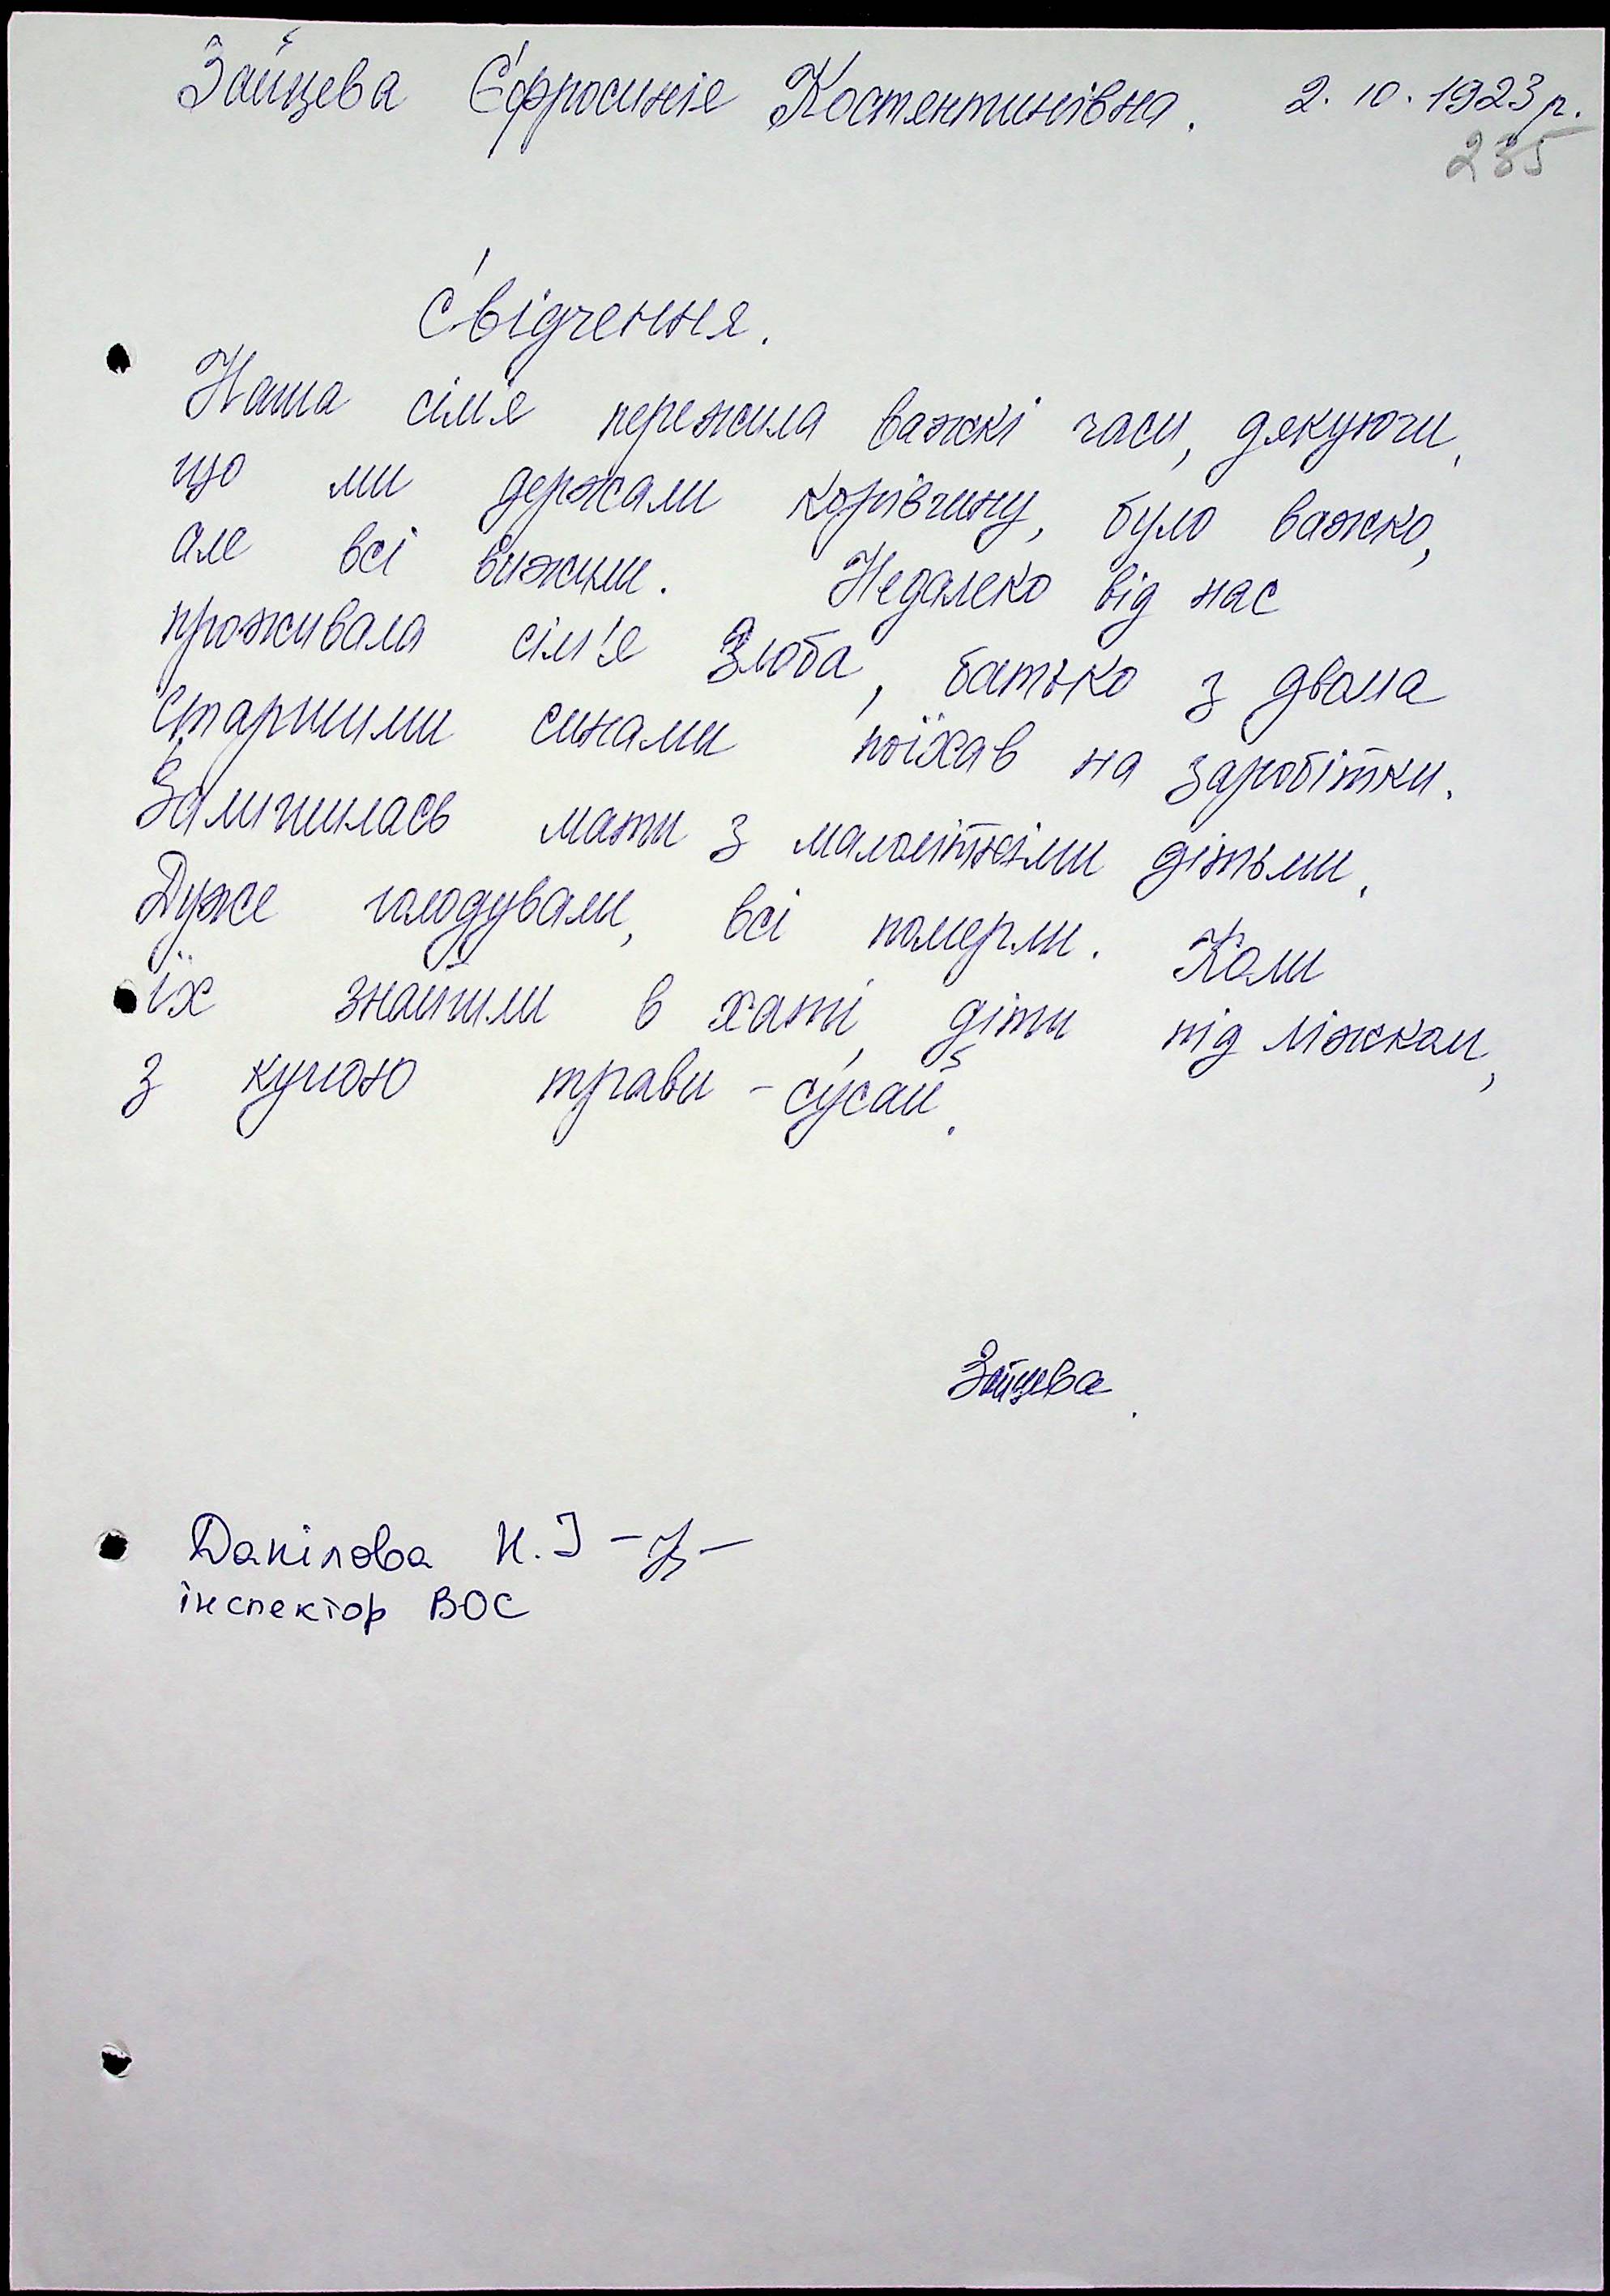 Зайцева Єфросинія Костянтинівна. 2.10.1923 р.
235
Свідчення.
Наша сім'я пережила важкі часи, дякуючи,
що ми держали корівчину, було важко,
але всі вижили. Недалеко від нас
проживала сім'я Злоба, батько з двома
старшими синами поїхав на заробітки.
Залишилась мати з малолітніми дітьми.
Дуже голодували, всі померли. Коли
їх знайшли в хаті, діти під ліжком,
з кучою трави - сусай.
Зайцева.
Данілова Н.І
інспектор ВОС